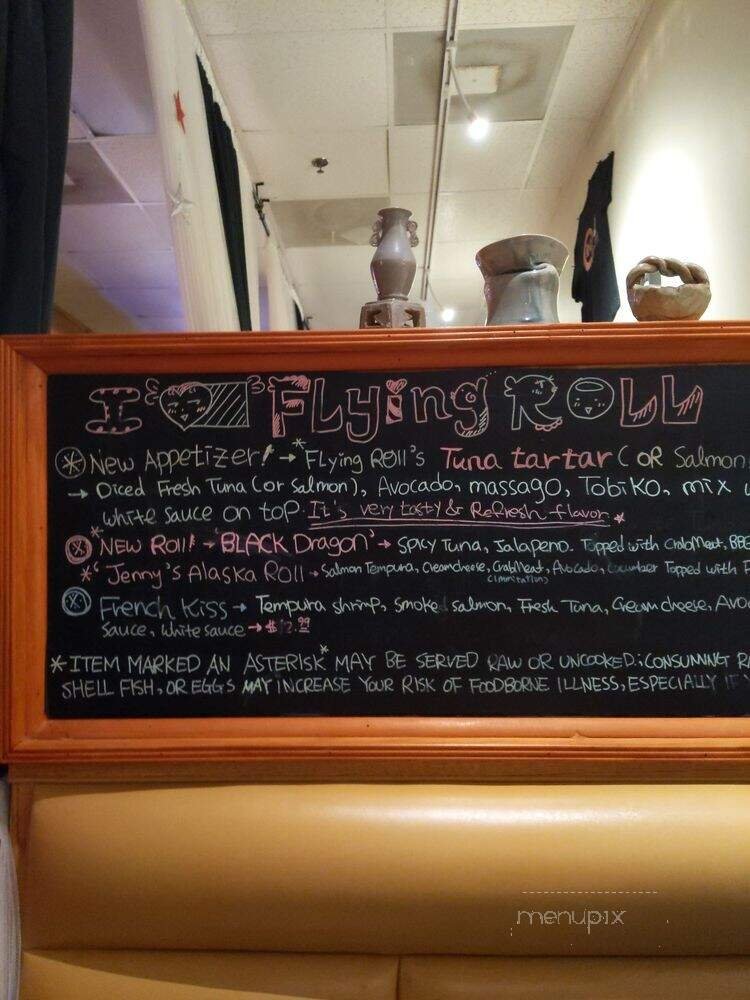 I FLyiNg ROLL
* NEW APPETIZER! → *FLYing ROll's Tuna tartar (OR Salmon
→ Diced Fresh Tuna (or Salmon), Avocado, massago, TobiKo, mix
white sauce on top. It's very tasty & Refresh flavor *
* NEW ROll! → BLACK Dragon' → SPICY Tuna, Jalapeno. Topped with CrabMeat,
*' Jenny's Alaska Roll → Salmon Tempura, Creamcheese, CrabMeat, Avocado, Cucumber Topped with
(immitation)
* French Kiss → Tempura shrimp, smoked salmon, Fresh Tuna, Cream cheese, Avo
Sauce, white sauce →
*ITEM MARKED AN ASTERISK* MAY BE SERVED RAW OR UNCOOKED; CONSUMING
SHELL FISH, OR EGGS MAY INCREASE YOUR RISK OF FOODBORNE ILLNESS, ESPECIALLY IF
menupix